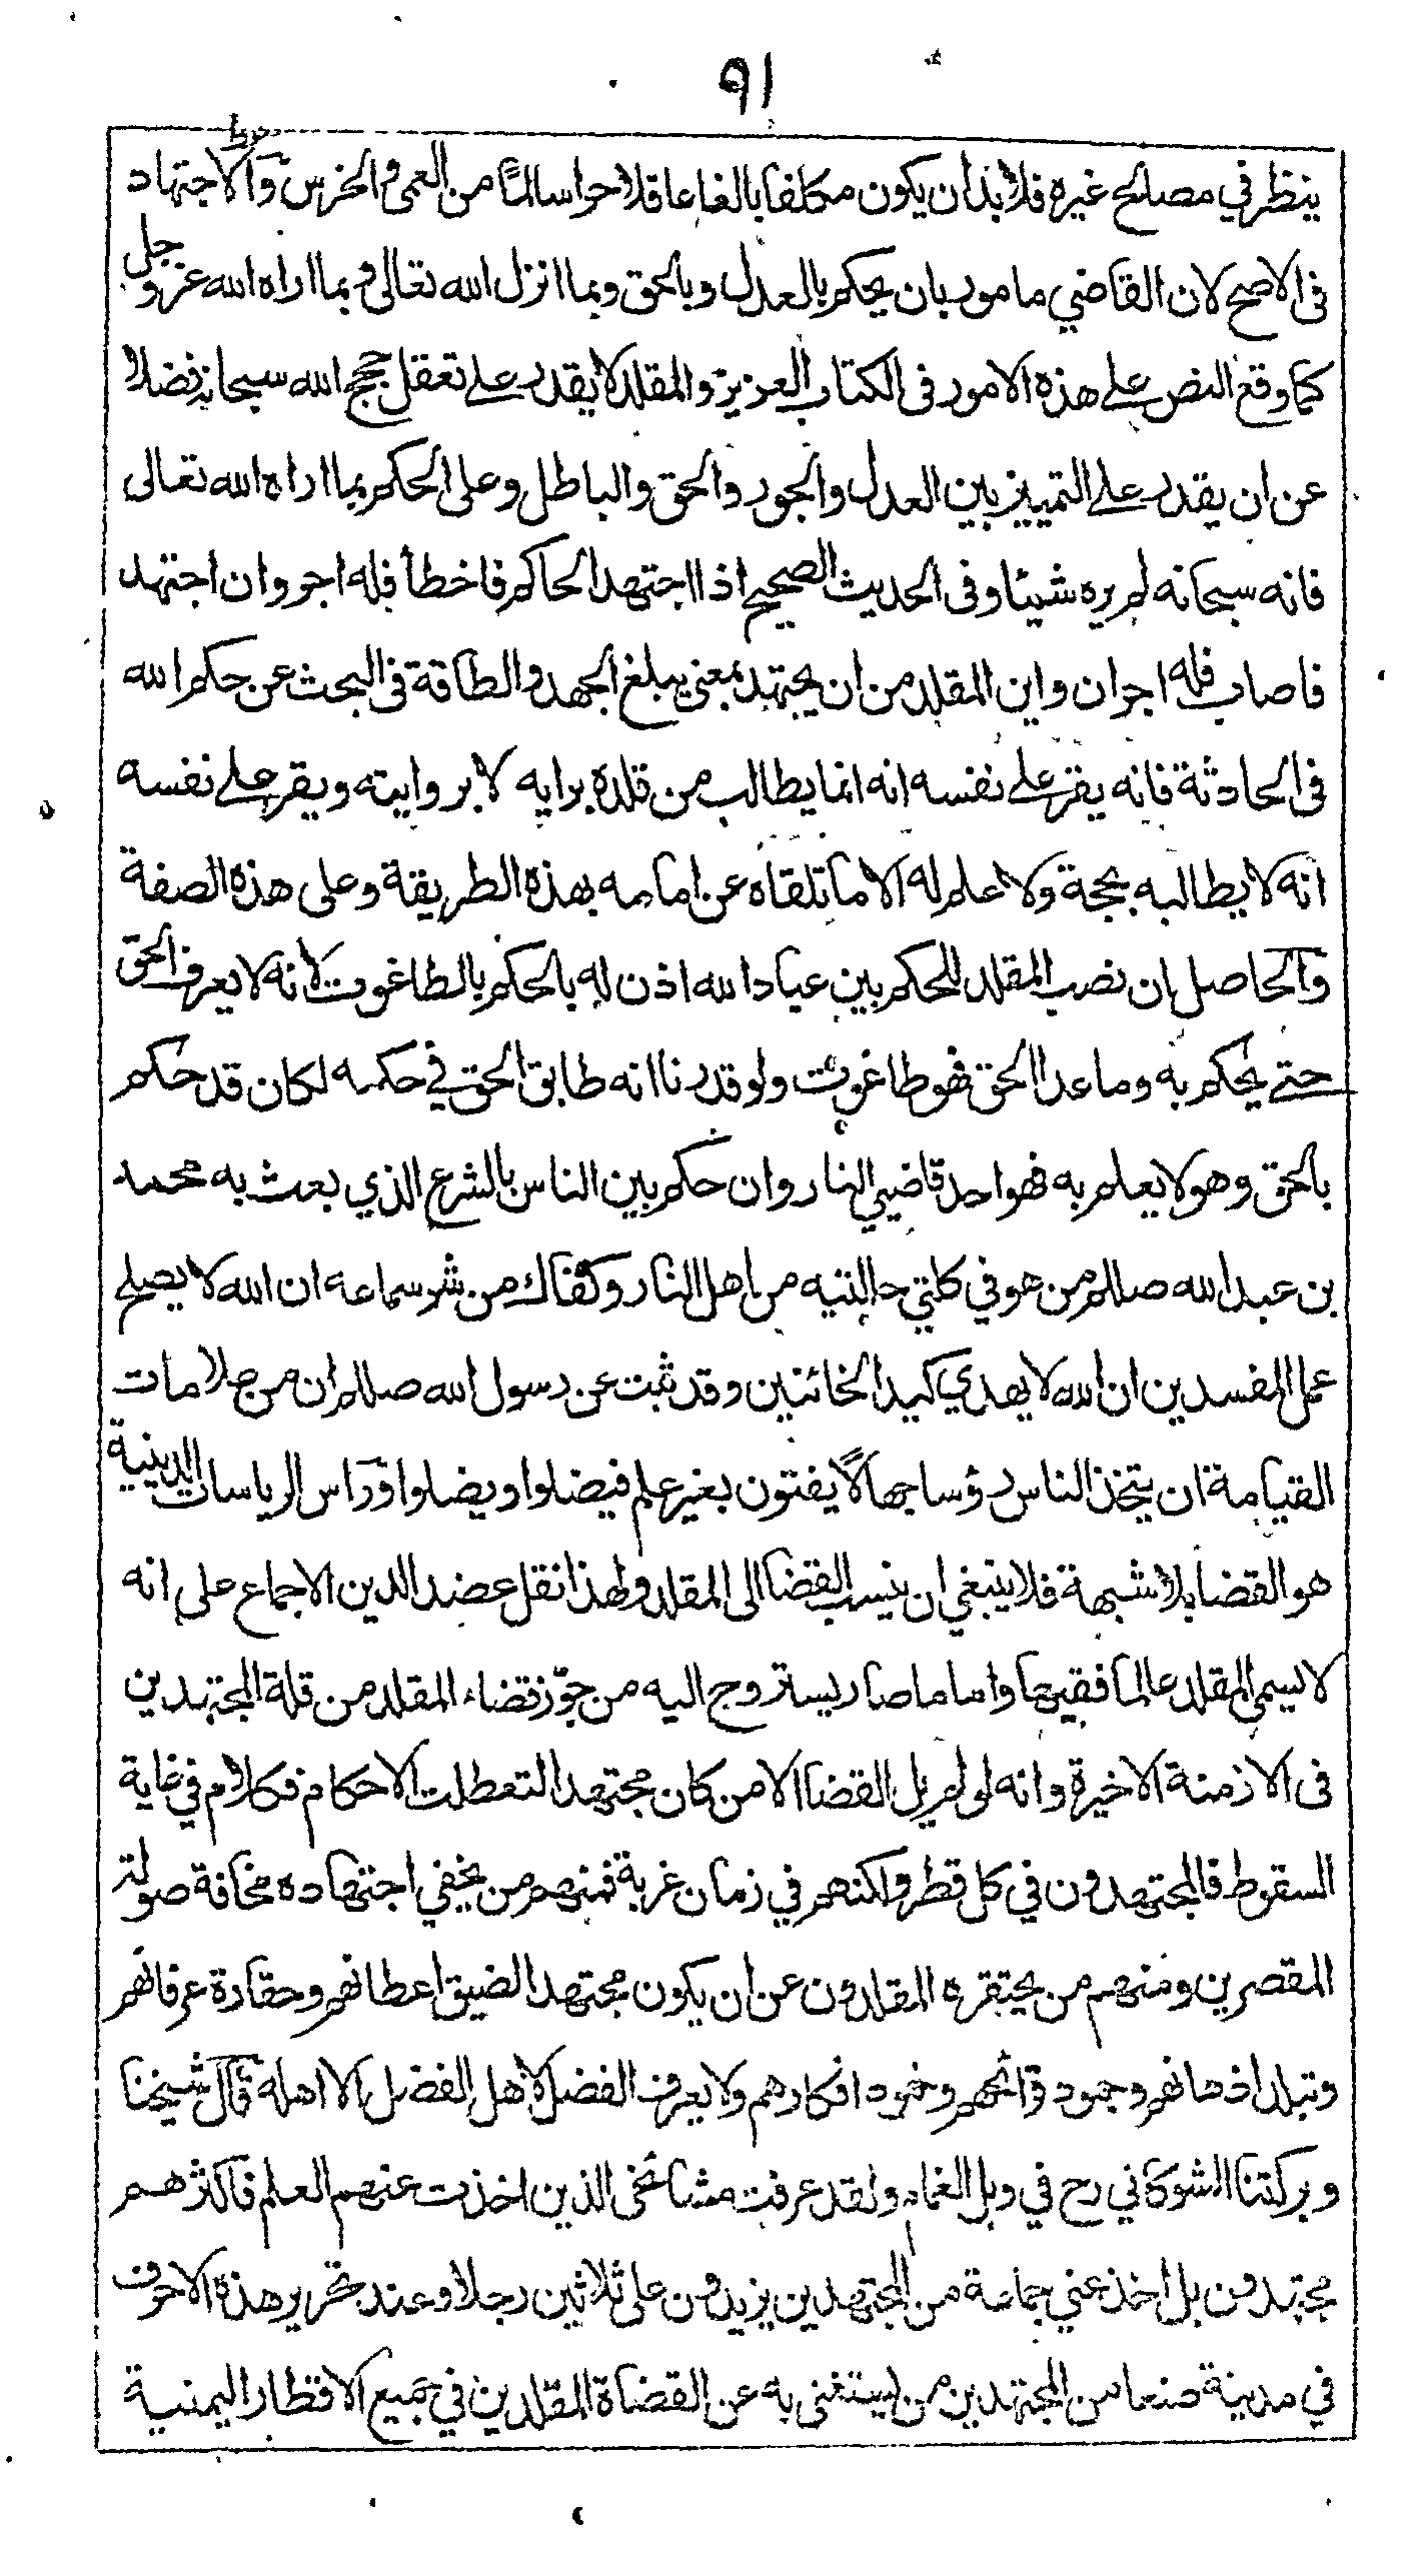 ٩١
ينظر في مصالح غيره فلا بد ان يكون مكلفا بالغا عاقلا حرا سالما من العمى والخرس والاجتهاد شرط
فى الاصح لان القاضي مامور بان يحكم بالعدل وبالحق وبما انزل الله تعالى وبما اراه الله عز وجل
كما وقع النص على هذه الامور فى الكتاب العزيز والمقلد لا يقدر على تعقل حجج الله سبحانه فضلا
عن ان يقدر على التمييز بين العدل والجور والحق والباطل وعلى الحكم بما اراه الله تعالى
فانه سبحانه لم يره شيئا وفى الحديث الصحيح اذا اجتهد الحاكم فاخطأ فله اجر وان اجتهد
فاصاب فله اجران واين المقلد من ان يجتهد بمعنى يبلغ الجهد والطاقة فى البحث عن حكم الله
فى الحادثة فانه يقر على نفسه انه انما يطالب من قلده برايه لا بروايته ويقر على نفسه
انه لا يطالبه بحجة ولا علم له الا ما تلقاه عن امامه بهذه الطريقة وعلى هذه الصفة
والحاصل ان نصب المقلد للحكم بين عباد الله اذن له بالحكم بالطاغوت لانه لا يعرف الحق
حتى يحكم به وما عدا الحق فهو طاغوت ولو قدرنا انه طابق الحق في حكمه لكان قد حكم
بالحق وهو لا يعلم به فهو احد قاضيي النار وان حكم بين الناس بالشرع الذي بعث به محمد
بن عبد الله صللم من هو في كلتي حالتيه من اهل النار وكفاك من شر سماعه ان الله لا يصلح
عمل المفسدين ان الله لا يهدي كيد الخائنين وقد ثبت عن رسول الله صللم ان من علامات
القيامة ان يتخذ الناس رؤسا جهالًا يفتون بغير علم فيضلوا ويضلوا وراس الرياسات الدينية
هو القضا بلا شبهة فلا ينبغي ان ينسب القضا الى المقلد ولهذا نقل عضد الدين الاجماع على انه
لا يسمى المقلد عالما فقيها واما ما صار يستروج اليه من جوّز قضاء المقلد من قلة المجتهدين
فى الازمنة الاخيرة وانه لو لم يل القضا الا من كان مجتهدا لتعطلت الاحكام فكلام في غاية
السقوط فالمجتهدون في كل قطر ولكنهم في زمان غربة فمنهم من يخفي اجتهاده مخافة صولة
المقصرين ومنهم من يحتقره المقلدون عن ان يكون مجتهدا لضيق اعطانهم وحقارة عرفانهم
وتبلد اذهانهم وجمود قرائحهم وخمود افكارهم ولا يعرف الفضل لاهل الفضل الا اهله قال شيخنا
وبركتنا الشوكاني رح في وبل الغمام ولقد عرفت مشائخى الذين اخذت عنهم العلم فاكثرهم
مجتهدون بل اخذ عني جماعة من المجتهدين يزيدون على ثلاثين رجلا وعند تحرير هذه الاحرف
في مدينة صنعا من المجتهدين من يستغنى به عن القضاة المقلدين في جميع الاقطار اليمنية